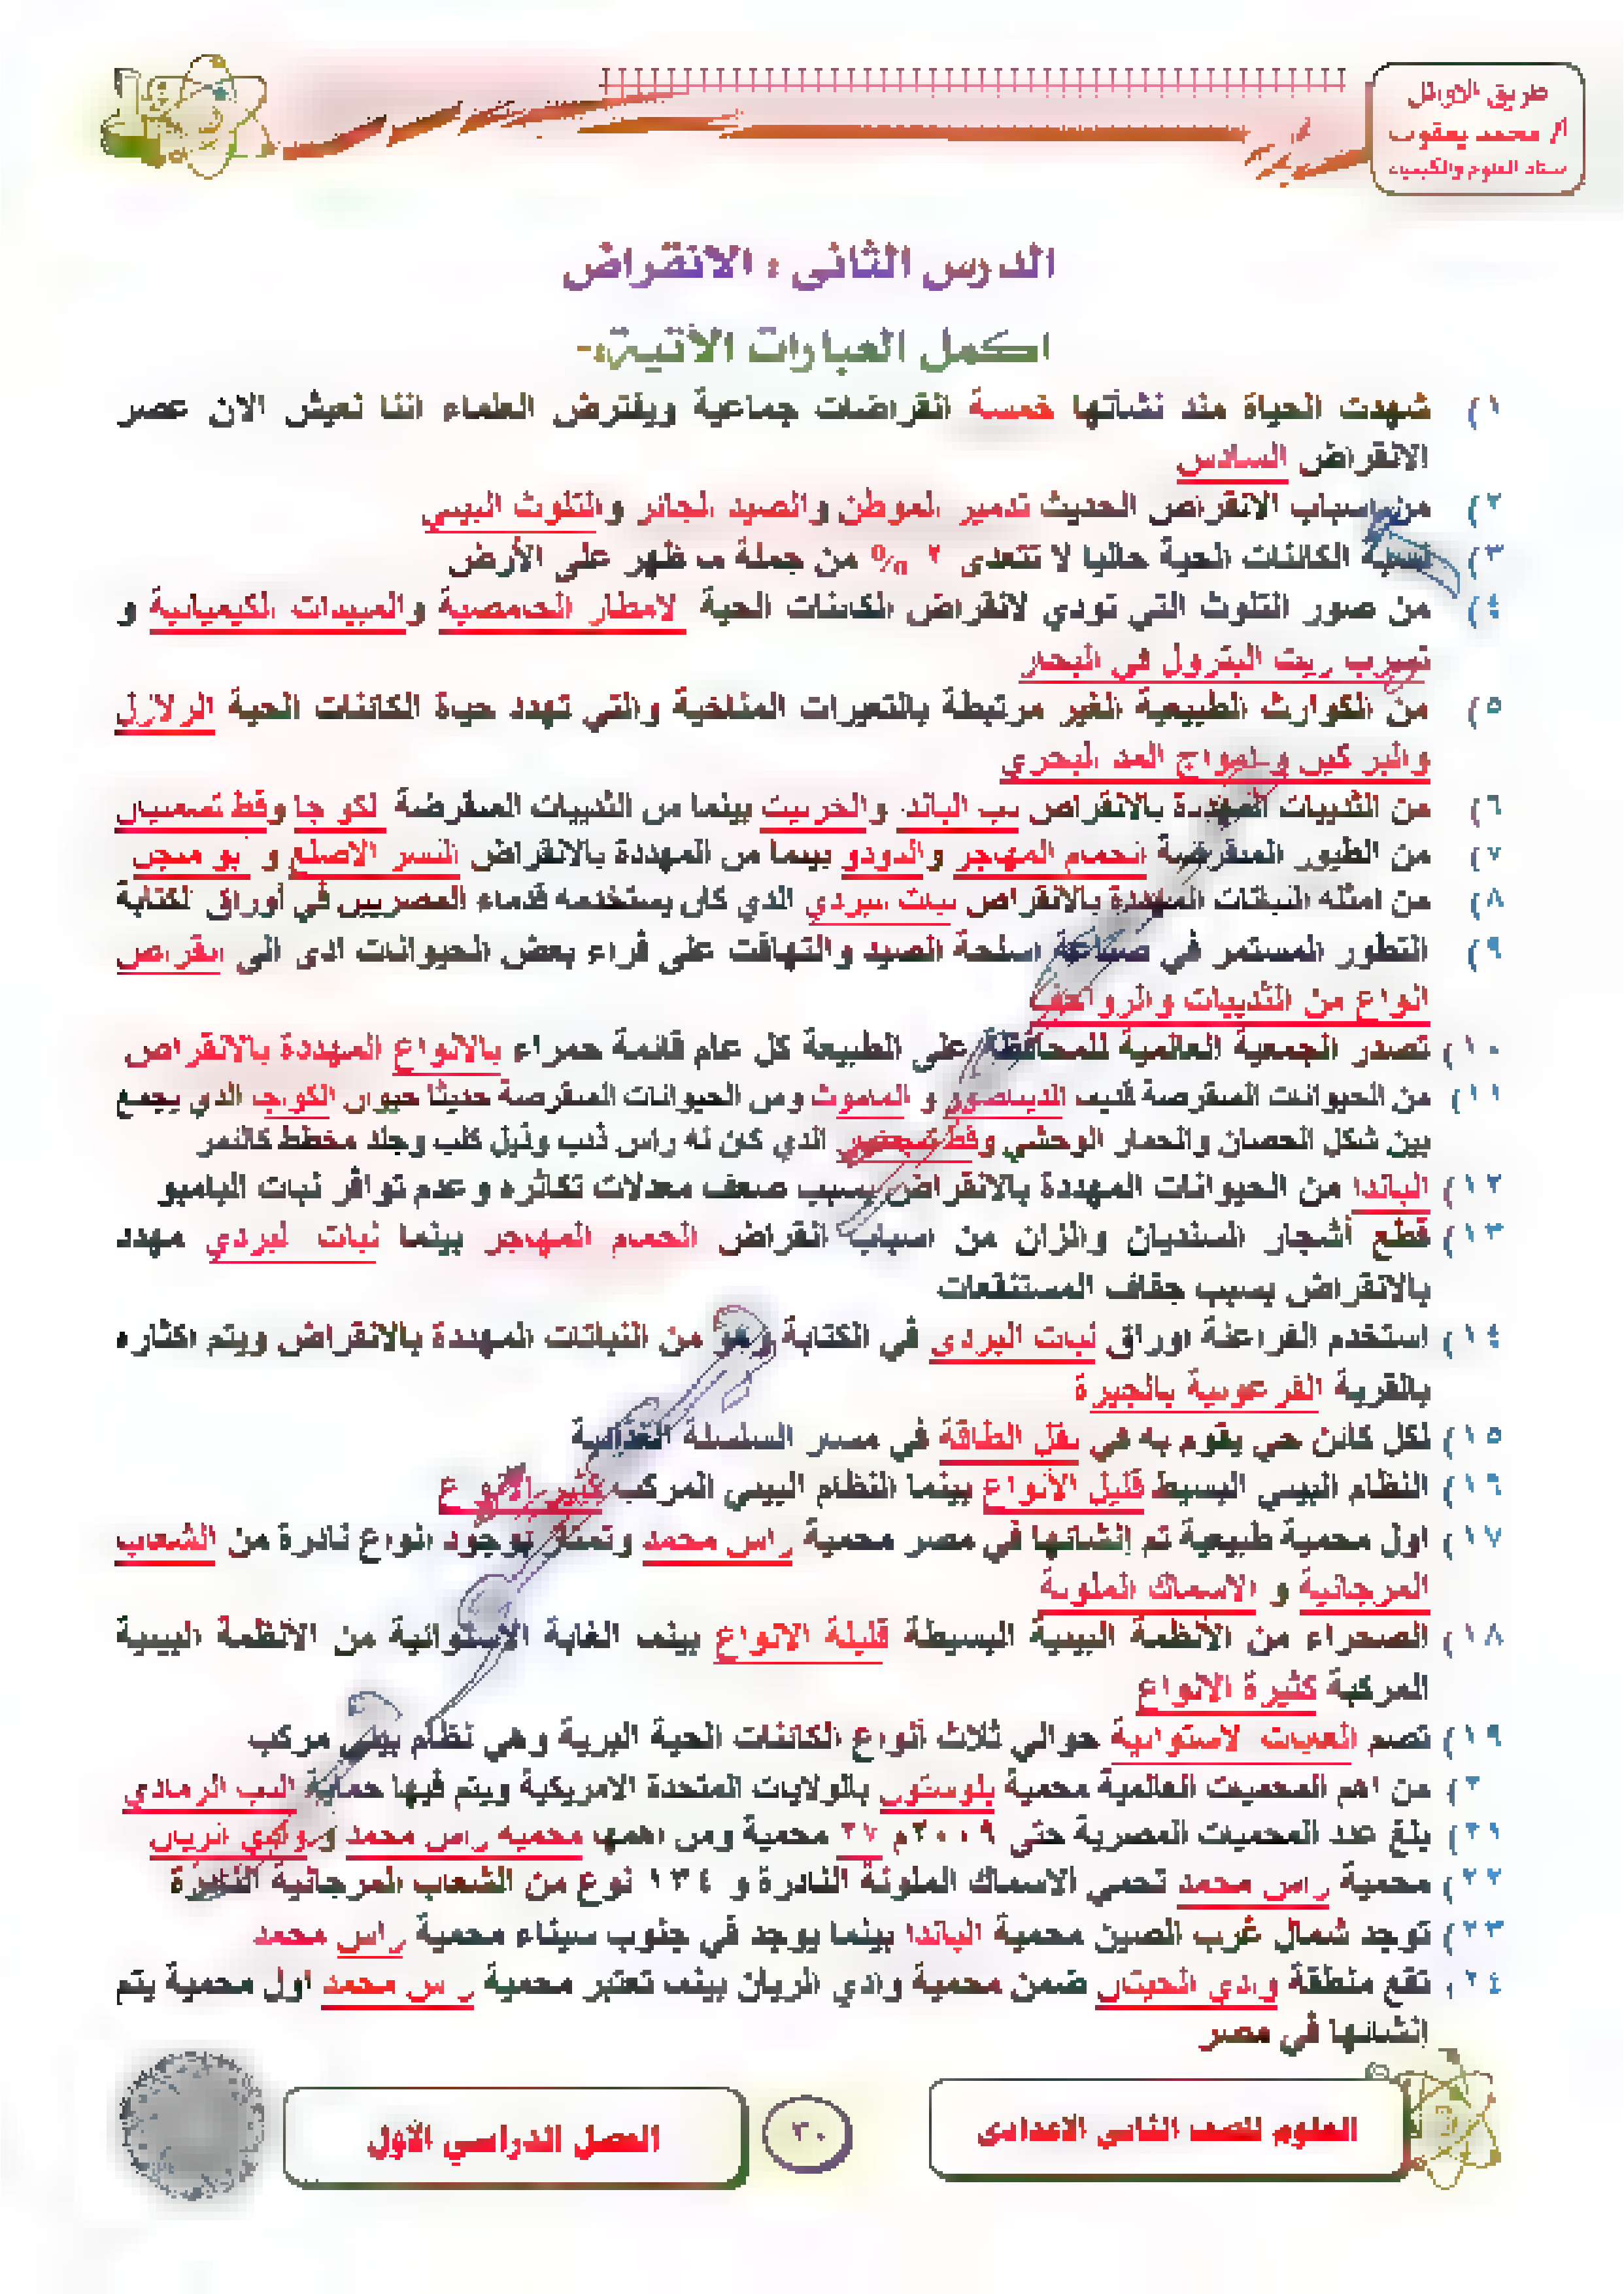 طريق الاوائل
أ/ محمد يعقوب
ستاذ العلوم والكيمياء
الدرس الثانى : الانقراض
اكمل العبارات الأتية:-
١) شهدت الحياة منذ نشأتها خمسة انقراضات جماعية ويفترض العلماء اننا نعيش الان عصر
الانقراض السادس
٢) من اسباب الانقراض الحديث تدمير الموطن والصيد الجائر والتلوث البيئي
٣) نسبة الكائنات الحية حاليا لا تتعدى ٢ % من جملة ما ظهر على الأرض
٤) من صور التلوث التي تودي لانقراض الكائنات الحية الامطار الحامضية والمبيدات الكيميائية و
تسرب زيت البترول في البحار
٥) من الكوارث الطبيعية الغير مرتبطة بالتغيرات المناخية والتي تهدد حياة الكائنات الحية الزلازل
والبراكين و امواج المد البحري
٦) من الثدييات المهددة بالانقراض دب الباندا والخرتيت بينما من الثدييات المنقرضة الكواجا وقط تسمانيان
٧) من الطيور المنقرضة الحمام المهاجر والدودو بينما من المهددة بالانقراض النسر الاصلع و ابو منجل
٨) من امثله النباتات المهددة بالانقراض نبات البردي الذي كان يستخدمه قدماء المصريين في أوراق الكتابة
٩) التطور المستمر في صناعة اسلحة الصيد والتهافت على فراء بعض الحيوانات ادى الى انقراض
انواع من الثدييات والزواحف
١٠) تصدر الجمعية العالمية للمحافظة على الطبيعة كل عام قائمة حمراء بالانواع المهددة بالانقراض
١١) من الحيوانات المنقرضة قديما الديناصور و الماموث ومن الحيوانات المنقرضة حديثا حيوان الكواجا الذي يجمع
بين شكل الحصان والحمار الوحشي وقط الذي كان له راس ذئب وذيل كلب وجلد مخطط كالنمر
١٢) الباندا من الحيوانات المهددة بالانقراض بسبب ضعف معدلات تكاثره وعدم توافر نبات البامبو
١٣) قطع أشجار السنديان والزان من اسباب انقراض الحمام المهاجر بينما نبات البردي مهدد
بالانقراض بسبب جفاف المستنقعات
١٤) استخدم الفراعنة اوراق نبات البردى في الكتابة وهو من النباتات المهددة بالانقراض ويتم اكثاره
بالقرية الفرعونية بالجيزة
١٥) لكل كائن حى يقوم به في نقل الطاقة في مسار السلسلة الغذائية
١٦) النظام البيئى البسيط قليل الأنواع بينما النظام البيئى المركب كثير الأنواع
١٧) اول محمية طبيعية تم إنشائها في مصر محمية راس محمد وتمتاز بوجود انواع نادرة من الشعاب
المرجانية و الاسماك الملونة
١٨) الصحراء من الأنظمة البيئية البسيطة قليلة الانواع بينما الغابة الاستوائية من الأنظمة البيئية
المركبة كثيرة الانواع
١٩) تضم الغابات الاستوائية حوالي ثلاث أنواع الكائنات الحية البرية وهي نظام بيئي مركب
٢٠) من اهم المحميات العالمية محمية يلوستون بالولايات المتحدة الامريكية ويتم فيها حماية الدب الرمادي
٢١) بلغ عدد المحميات المصرية حتى ٢٠٠٩م ٢٧ محمية ومن اهمها محمية راس محمد و وادي الريان
٢٢) محمية راس محمد تحمي الاسماك الملونة النادرة و ١٣٤ نوع من الشعاب المرجانية النادرة
٢٣) توجد شمال غرب الصين محمية الباندا بينما يوجد في جنوب سيناء محمية راس محمد
٢٤) تقع منطقة وادي الحيتان ضمن محمية وادي الريان بينما تعتبر محمية راس محمد اول محمية يتم
إنشائها في مصر
العلوم للصف الثانى الاعدادى
٣٠
الفصل الدراسي الأول